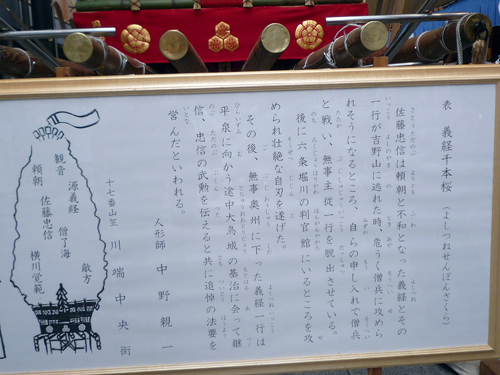 表 義経千本桜(よしつねせんぼんざくら)
佐藤忠信は頼朝と不和となった義経とその
一行が吉野山に逃れた時、危うく僧兵に攻めら
れそうになるところ、自らの申し入れで僧兵
と戦い、無事主従一行を脱出させている。
後に六条堀川の判官館にいるところを攻
められ壮絶な自刃を遂げた。
その後、無事奥州に下った義経一行は
平泉に向かう途中大鳥城の基治に会って継
信、忠信の武勲を伝えると共に追悼の法要を
営んだといわれる。
人形師 中野親一
十七番山笠 川端中央街
敵方
源義経
僧了海
横川覚範
観音
佐藤忠信
頼朝